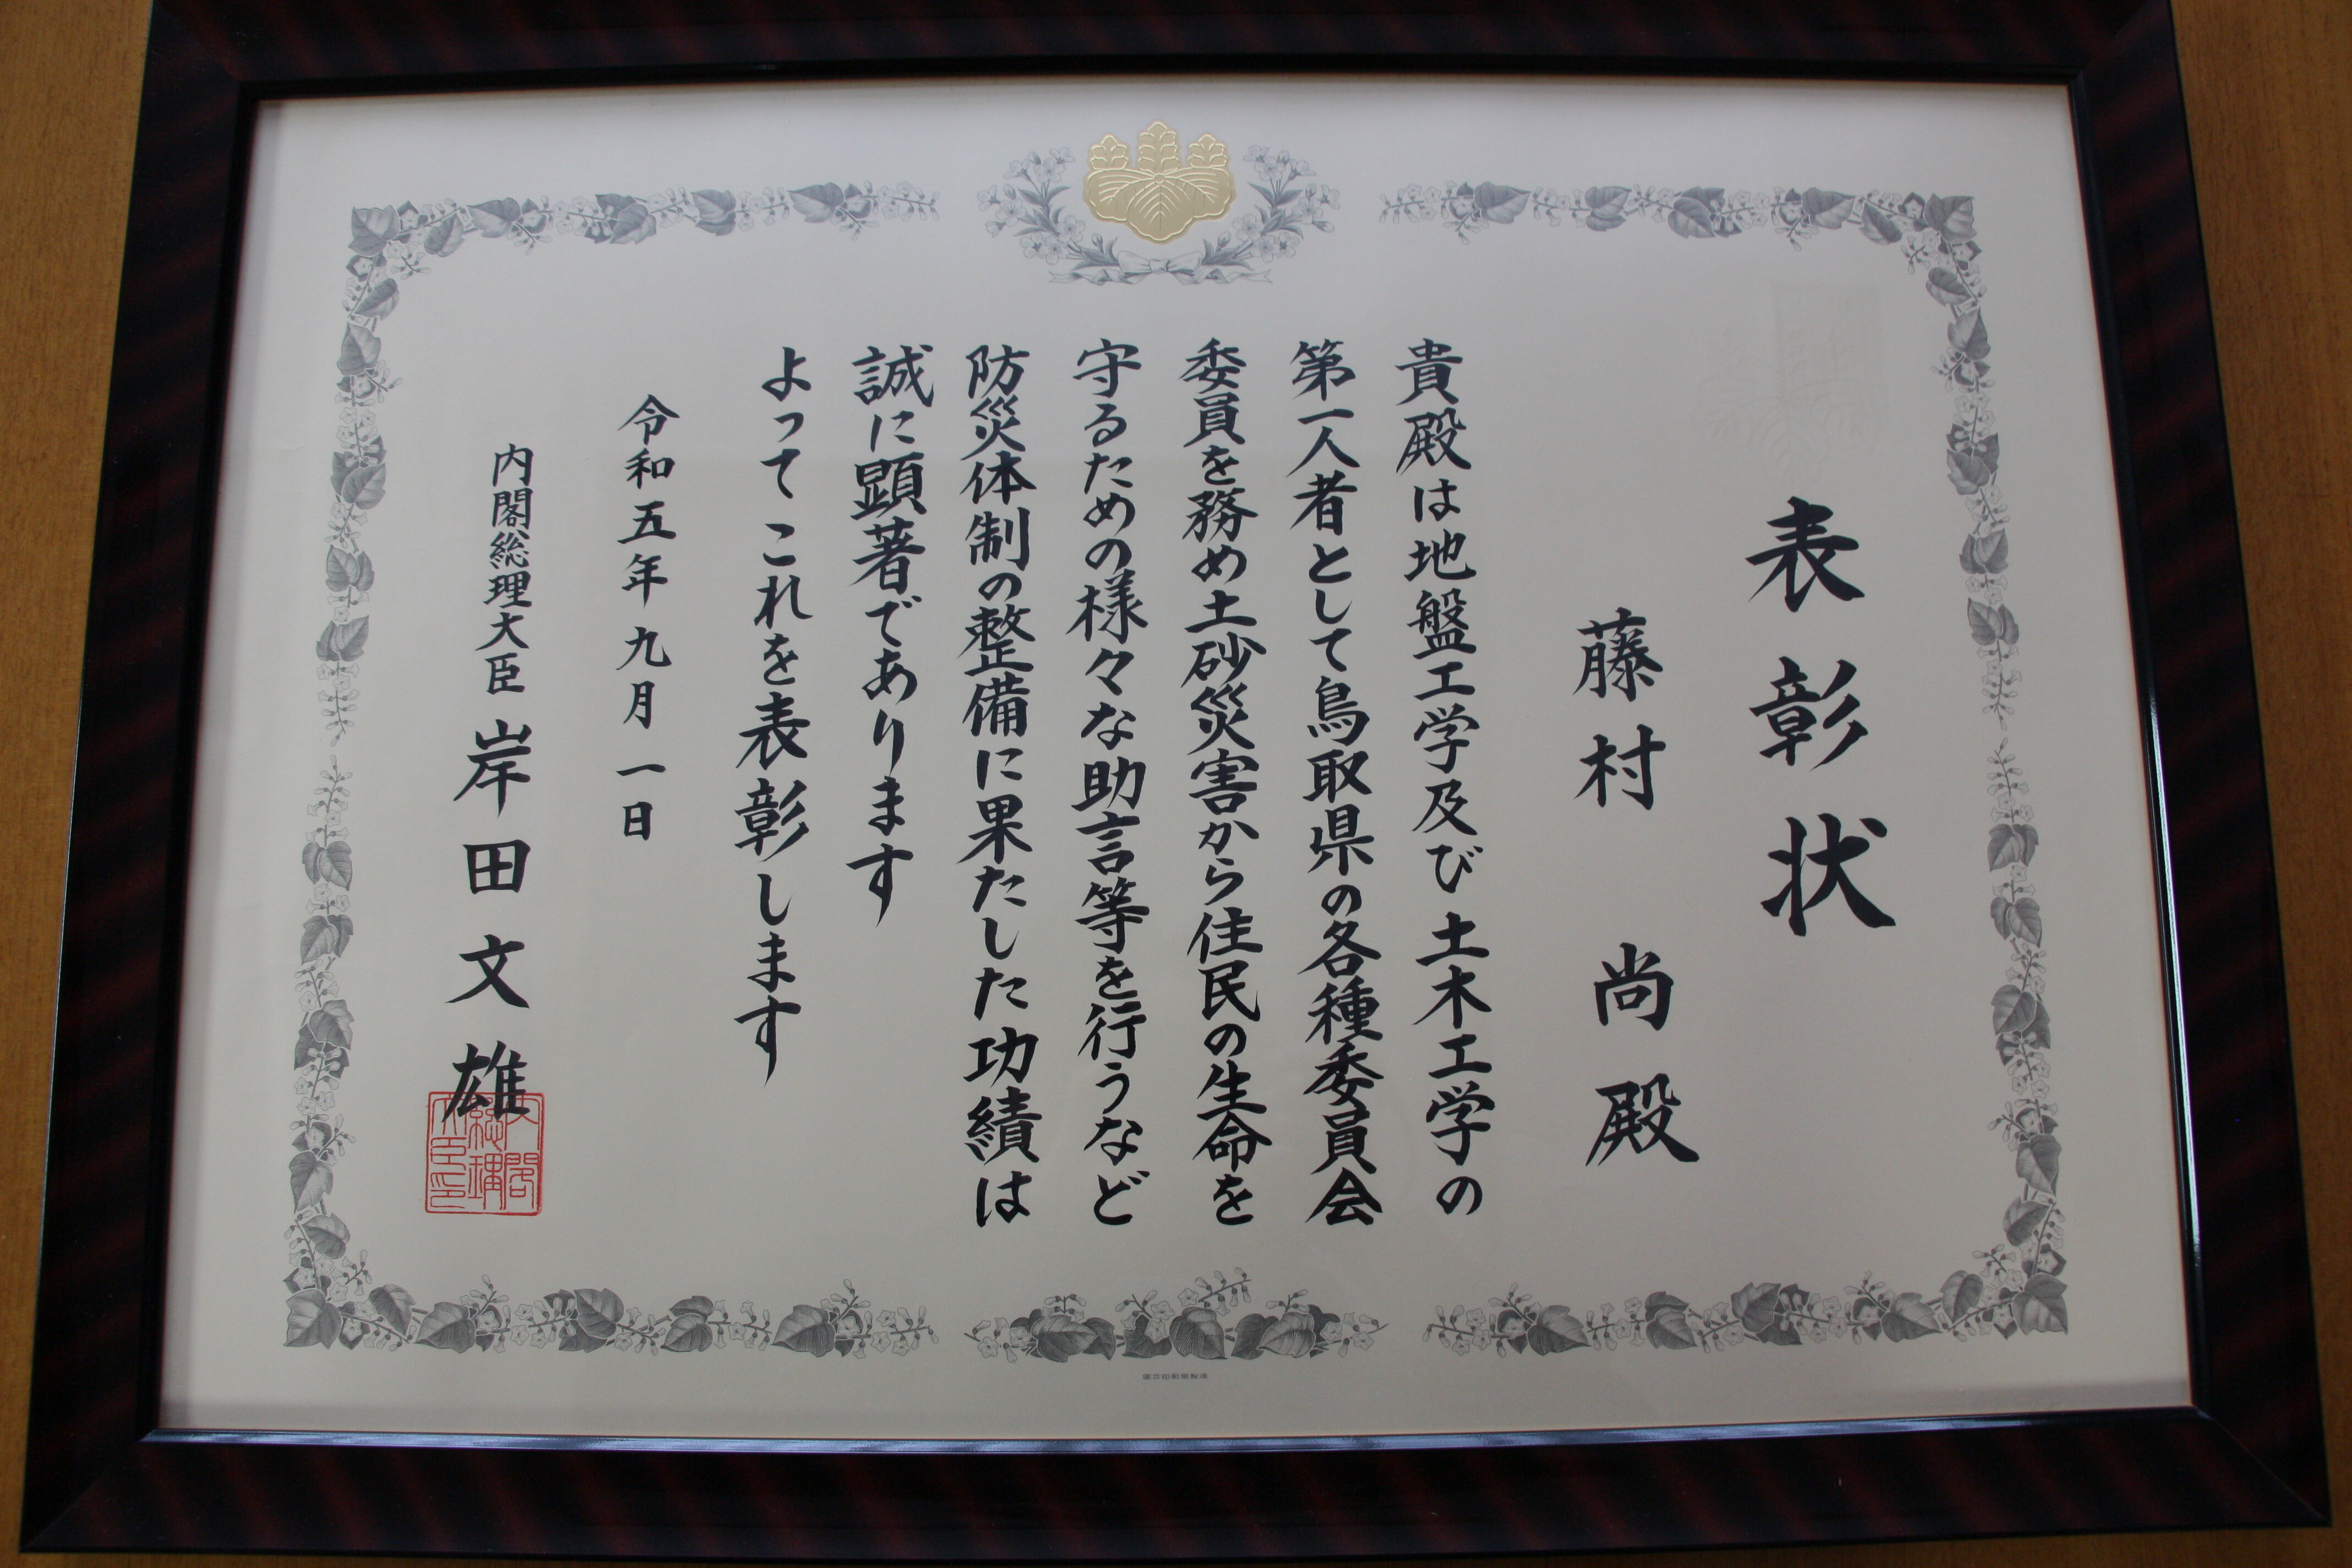 表彰状
藤村 尚 殿
貴殿は地盤工学及び土木工学の
第一人者として鳥取県の各種委員会
委員を務め土砂災害から住民の生命を
守るための様々な助言等を行うなど
防災体制の整備に果たした功績は
誠に顕著であります
よってこれを表彰します
令和五年九月一日
内閣総理大臣 岸田文雄
内閣総理大臣印
国立印刷局製造